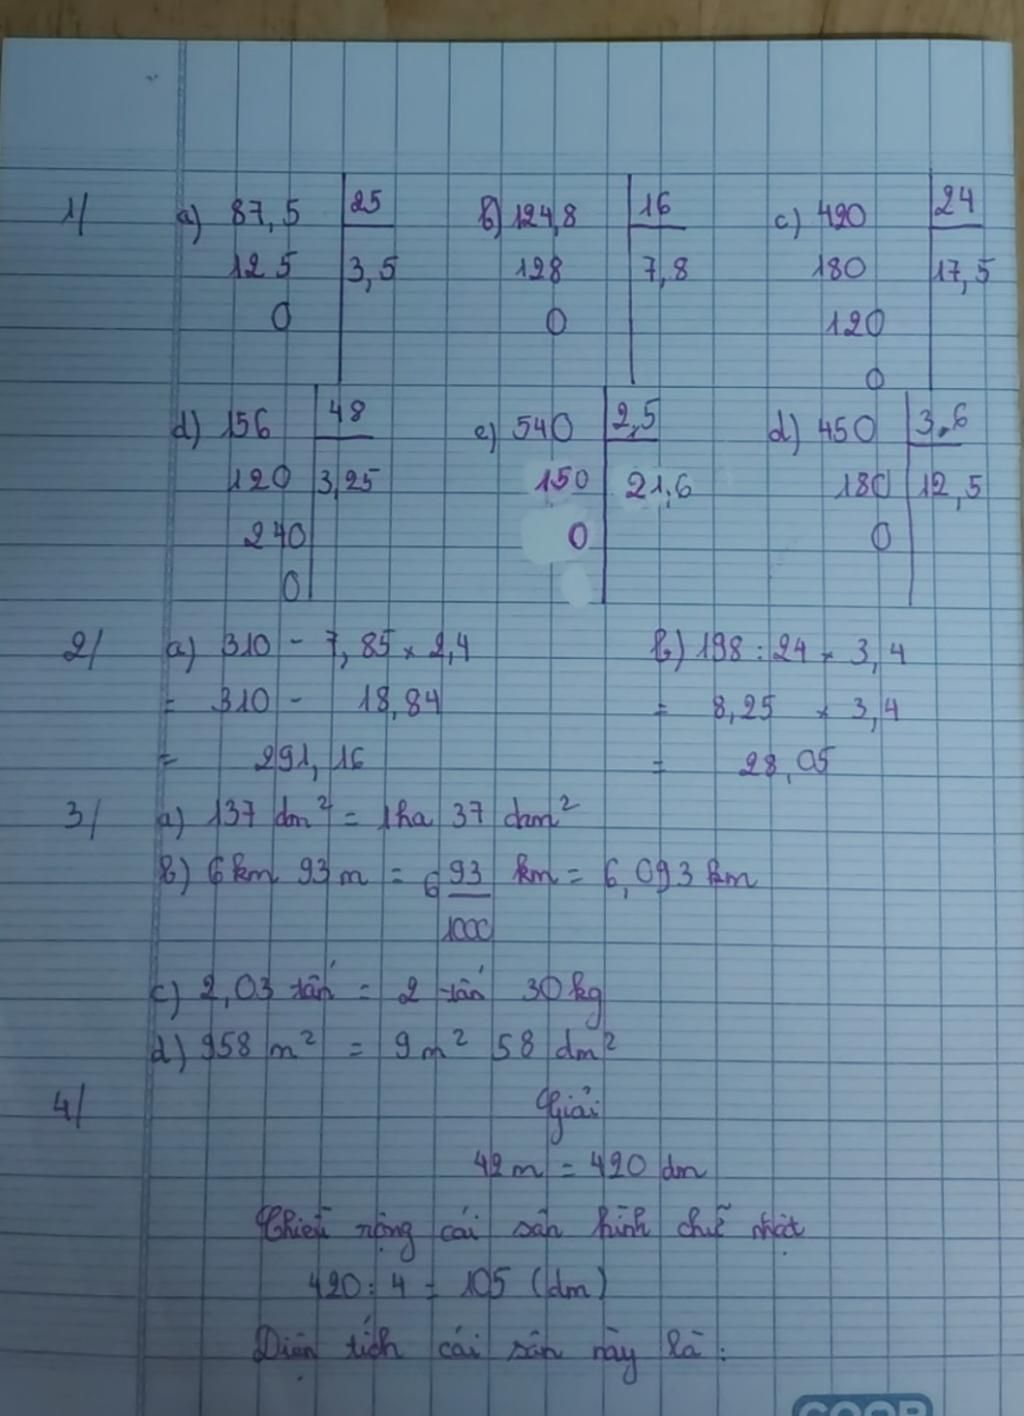 1/ a) 87,5 25 b) 124,8 16 c) 420 24
125 3,5 128 7,8 180 17,5
0 0 120
0
d) 156 48 e) 540 2,5 d) 450 3,6
120 3,25 150 21,6 180 12,5
240 0 0
0
2/ a) 310 - 7,85 × 2,4 b) 198 : 24 × 3,4
= 310 - 18,84 = 8,25 × 3,4
= 291,16 = 28,05
3/ a) 137 dm² = 1ha 37 dam²
b) 6km 93m = 6 93/1000 km = 6,093 km
c) 2,03 tấn = 2 tấn 30kg
d) 958 m² = 9m² 58 dm²
4/ Giải
42m = 420 dm
Chiều rộng cái sân hình chữ nhật
420 : 4 = 105 (dm)
Diện tích cái sân này là :
COOP